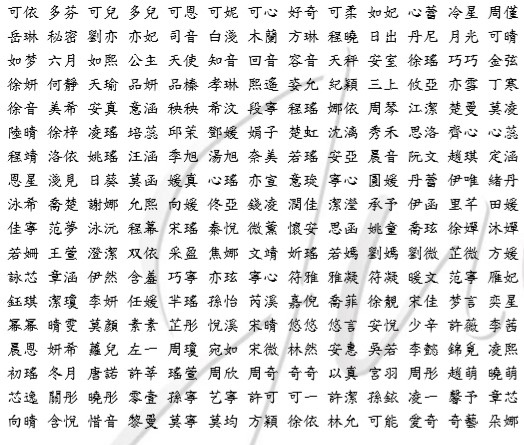 可依 多芬 可兒 多兒 可恩 可妮 可心 好奇 可柔 如妃 心蕾 冷星 周僅
岳琳 秘密 劉亦 亦妃 司音 白淺 木蘭 方琳 程曉 日出 丹尼 月光 可晴
如夢 六月 如熙 公主 天使 知音 回音 容音 天秤 安室 徐瑤 巧巧 金弦
徐妍 何靜 天瑜 品妍 品榛 孝琳 熙遙 姿允 紀穎 三上 攸亞 亦雪 丁寒
徐音 美希 安真 意涵 秧秧 希汶 段寧 程瑤 娜依 周琴 江潔 楚曼 莫凌
陸晴 徐梓 凌瑤 培蕊 邱茉 鄧媛 娟子 楚虹 沈漓 秀禾 思洛 齊心 心蕊
程靖 洛依 姚瑤 汪涵 季旭 湯旭 奈美 若瑤 安亞 晨音 阮文 趙琪 定涵
恩星 淺見 日葵 莫函 媛真 心瑤 亦宣 意琰 寧心 圓媛 丹蕾 伊唯 緒丹
泳希 喬楚 謝娜 允熙 向媛 佟亞 錢凌 潤佳 潔瀅 承予 伊函 里芊 田媛
佳寧 范夢 泳沅 程幕 宋瑤 秦悅 微薰 懷安 思函 姚童 喬玹 徐嬋 沐嬋
若姍 王萱 澄潔 双依 采盈 焦娜 文靖 妡瑤 若嫣 劉嫣 劉微 芷微 方媛
詠芯 章涵 伊然 含羞 巧寧 亦玹 寧心 符雅 雅凝 符凝 暖文 范寧 雁妃
鈺琪 潔瓊 李妍 任媛 芈瑤 孫怡 芮溪 嘉倪 喬菲 徐靚 宋佳 梦言 奕星
幂幂 晴雯 莫顏 素素 芷彤 悅溪 宋晴 悠悠 悠言 安悅 少辛 許薇 李茜
晨恩 妍希 蘿兒 左一 周瓊 宛如 宋微 林然 安惠 吳若 李懿 錦覓 凌熙
初瑤 冬月 唐諾 許莘 瑤萱 周欣 周奇 奇奇 以真 宮羽 周彤 趙萌 曉萌
芯逸 關彤 曉彤 零壹 孫寧 艺寧 許可 可一 許潔 孫銥 凌一 馨予 章芯
向晴 含悅 惜音 黎曼 莫寧 莫均 方穎 徐依 林允 可能 爱奇 奇藝 朵娜